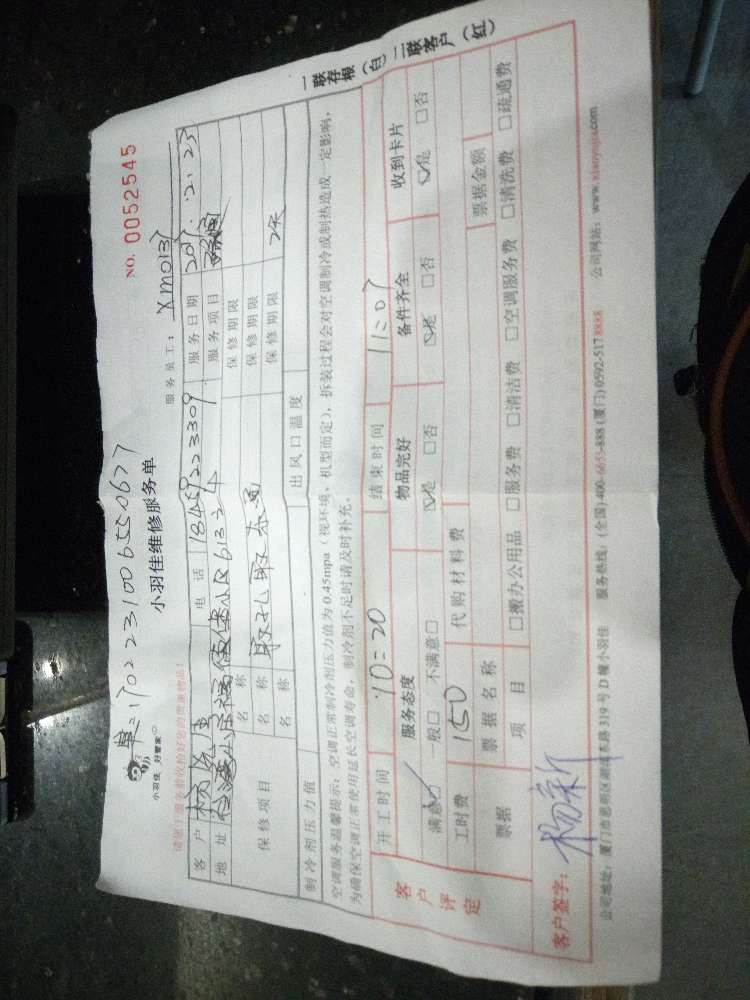 单:1702231006550627
NO. 0052545
小羽佳 好管家
小羽佳维修服务单
请您于服务前收拾好您的贵重物品!
服务员工: XM0137
客户 电话 18459223309 服务日期 2017.2.23
地址 服务项目
保修项目 名称 保修期限
名称 保修期限
名称 保修期限
制冷剂压力值 出风口温度
空调服务温馨提示: 空调正常制冷剂压力值为0.45mpa(视环境、机型而定), 拆装过程会对空调制冷或制热造成一定影响,
为确保空调正常使用延长空调寿命, 制冷剂不足时请及时补充。
开工时间 10:20 结束时间 11:07
客户评定
服务态度 物品完好 备件齐全 收到卡片
满意☑ 一般□ 不满意□ ☑是 □否 ☑是 □否 ☑是 □否
工时费 150 代购材料费
票据 票据名称 票据金额
项目 □搬办公用品 □服务费 □清洁费 □空调服务费 □清洗费 □疏通费
客户签字:
公司地址: 厦门市思明区湖滨东路319号D幢小羽佳 服务热线: (全国)400-6655-888 (厦门)0592-5178888 公司网站: www.xiaoyujia.com
一联存根(白) 二联客户(红)